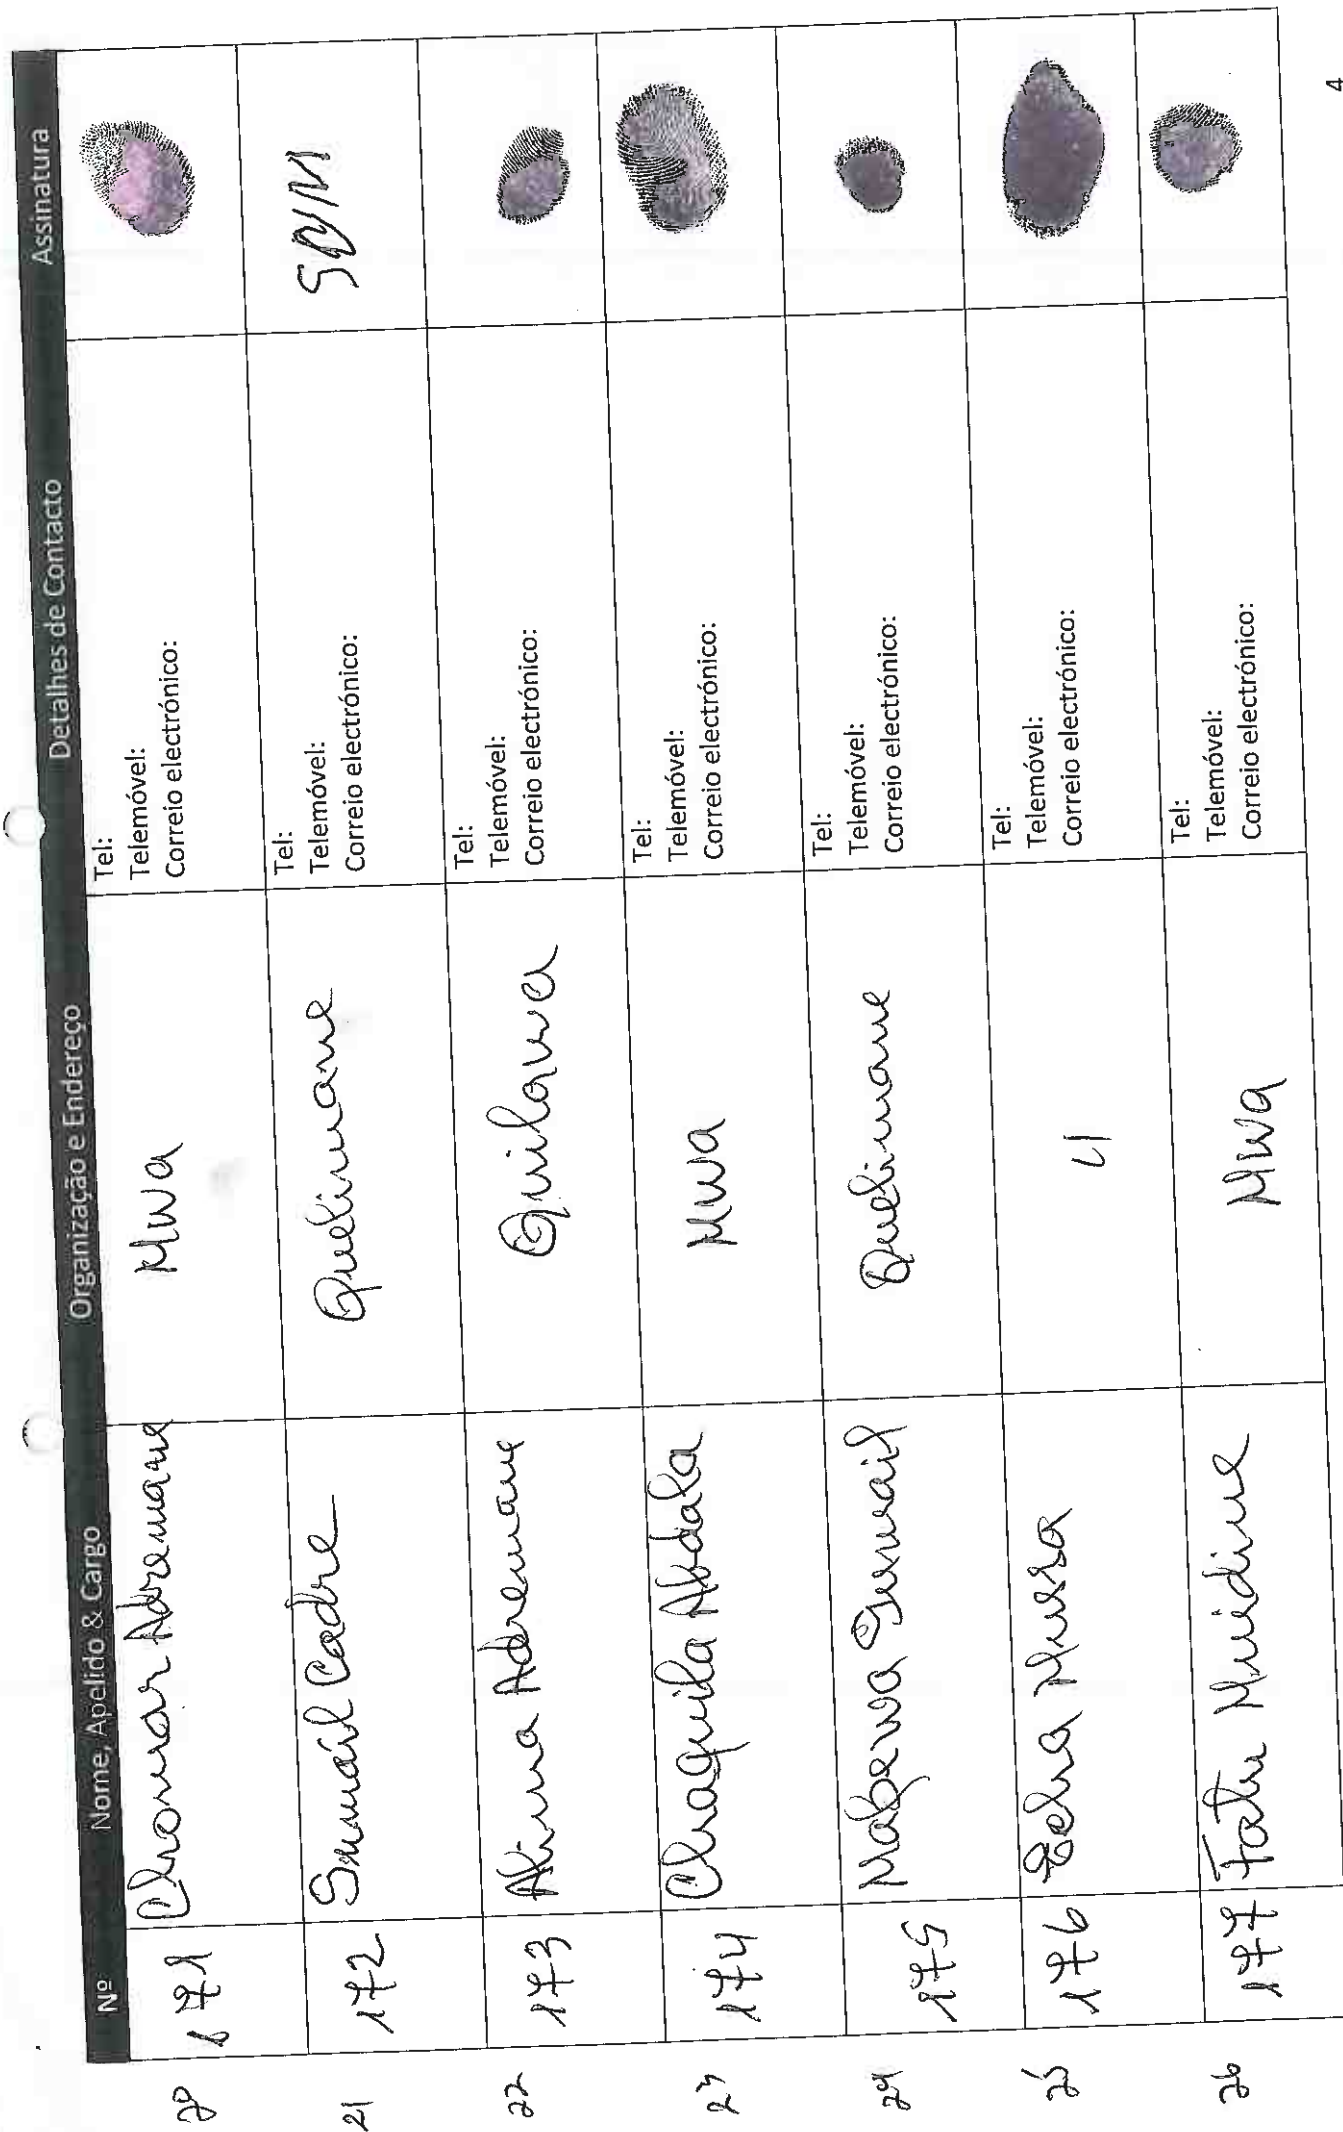 Nº Nome, Apelido & Cargo Organização e Endereço Detalhes de Contacto Assinatura
20 171 Chomar Adremane Mwa Tel:
Telemóvel:
Correio electrónico:
21 172 Ismáil Cadre Quelimane Tel:
Telemóvel:
Correio electrónico:
22 173 Atima Adremane Quilawa Tel:
Telemóvel:
Correio electrónico:
23 174 Chaquila Abdala Mwa Tel:
Telemóvel:
Correio electrónico:
24 175 Ismail Quelimane Tel:
Telemóvel:
Correio electrónico:
25 176 Mussa 4 Tel:
Telemóvel:
Correio electrónico:
26 177 Fatu Muidine Mwa Tel:
Telemóvel:
Correio electrónico:
4